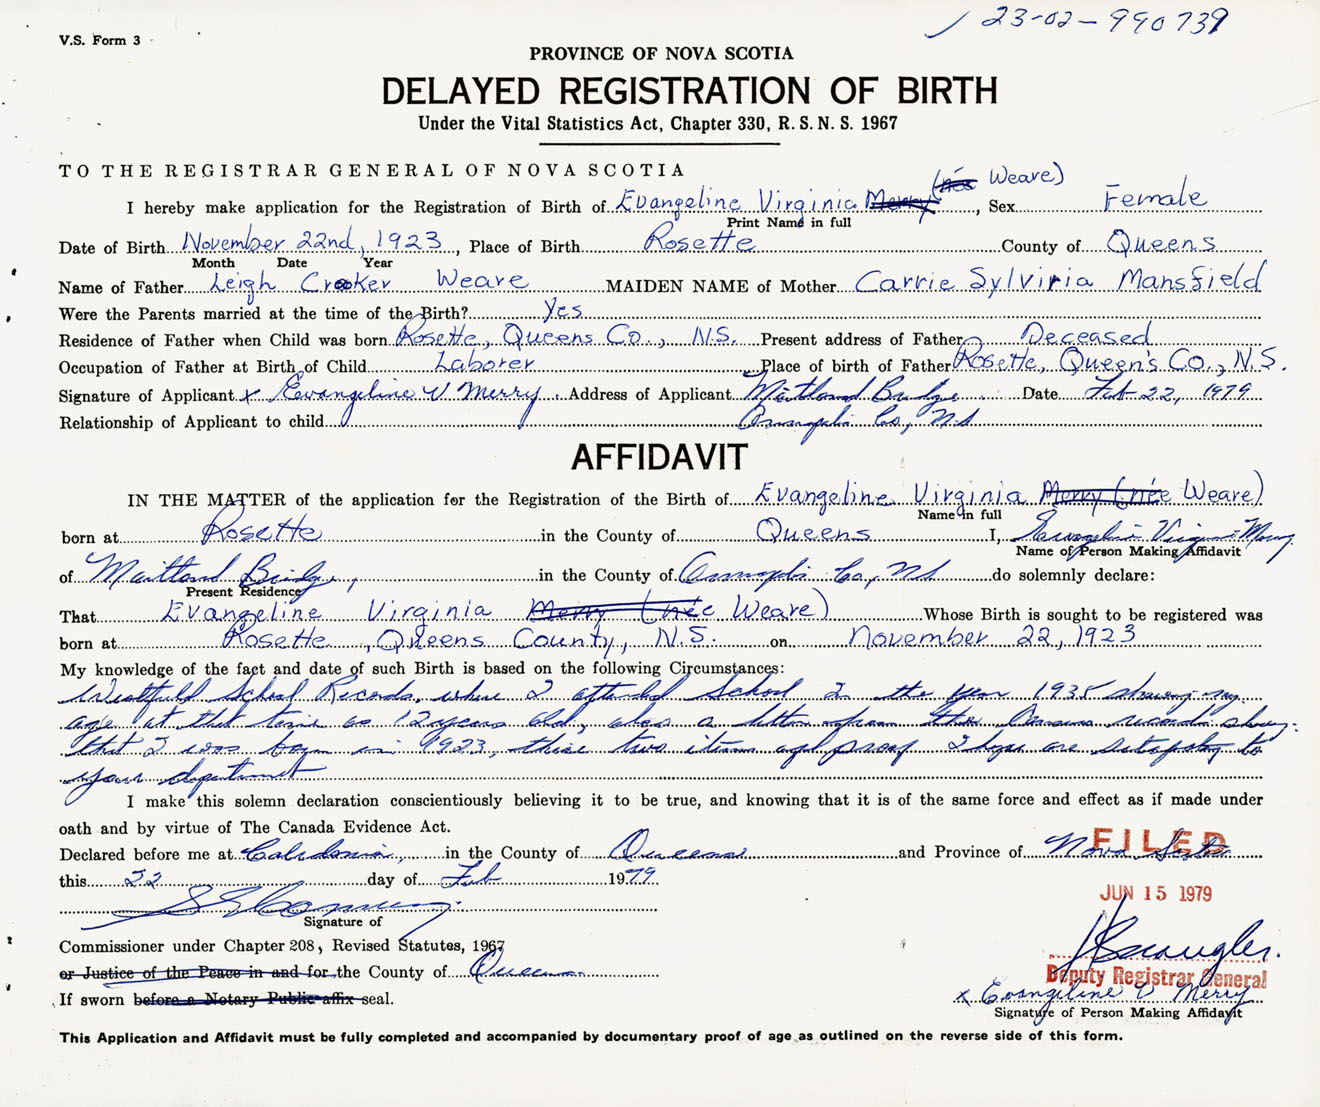 23-02-990739
V.S. Form 3
PROVINCE OF NOVA SCOTIA
DELAYED REGISTRATION OF BIRTH
Under the Vital Statistics Act, Chapter 330, R. S. N. S. 1967
TO THE REGISTRAR GENERAL OF NOVA SCOTIA
(née Weare)
I hereby make application for the Registration of Birth of Evangeline Virginia Merry, Sex Female
Print Name in full
Date of Birth November 22nd, 1923, Place of Birth Rosette County of Queens
Month Date Year
Name of Father Leigh Crooker Weare MAIDEN NAME of Mother Carrie Sylviria Mansfield
Were the Parents married at the time of the Birth? Yes
Residence of Father when Child was born Rosette, Queens Co., N.S. Present address of Father Deceased
Occupation of Father at Birth of Child Laborer Place of birth of Father Rosette, Queen's Co., N.S.
Signature of Applicant x Evangeline V Merry. Address of Applicant Maitland Bridge Date Feb 22, 1979
Relationship of Applicant to child Annapolis Co, NS
AFFIDAVIT
IN THE MATTER of the application for the Registration of the Birth of Evangeline Virginia Merry (née Weare)
Name in full
born at Rosette in the County of Queens I, Evangeline Virginia Merry
Name of Person Making Affidavit
of Maitland Bridge, in the County of Annapolis Co, NS do solemnly declare:
Present Residence
That Evangeline Virginia Merry (née Weare) Whose Birth is sought to be registered was
born at Rosette, Queens County, N.S. on November 22, 1923
My knowledge of the fact and date of such Birth is based on the following Circumstances:
Westfield School Records, where I attended School in the year 1935 showing my
age at that time as 12 years old, also a letter from the Census records
that I was born in 1923, these two items of proof I hope are to
your department
I make this solemn declaration conscientiously believing it to be true, and knowing that it is of the same force and effect as if made under
oath and by virtue of The Canada Evidence Act.
Declared before me at Caledonia, in the County of Queens and Province of Nova Scotia
FILED
this 22 day of Feb 1979
JUN 15 1979
Signature of
Commissioner under Chapter 208, Revised Statutes, 1967
or Justice of the Peace in and for the County of Queens
Deputy Registrar General
If sworn before a Notary Public affix seal.
x Evangeline V Merry
Signature of Person Making Affidavit
This Application and Affidavit must be fully completed and accompanied by documentary proof of age as outlined on the reverse side of this form.